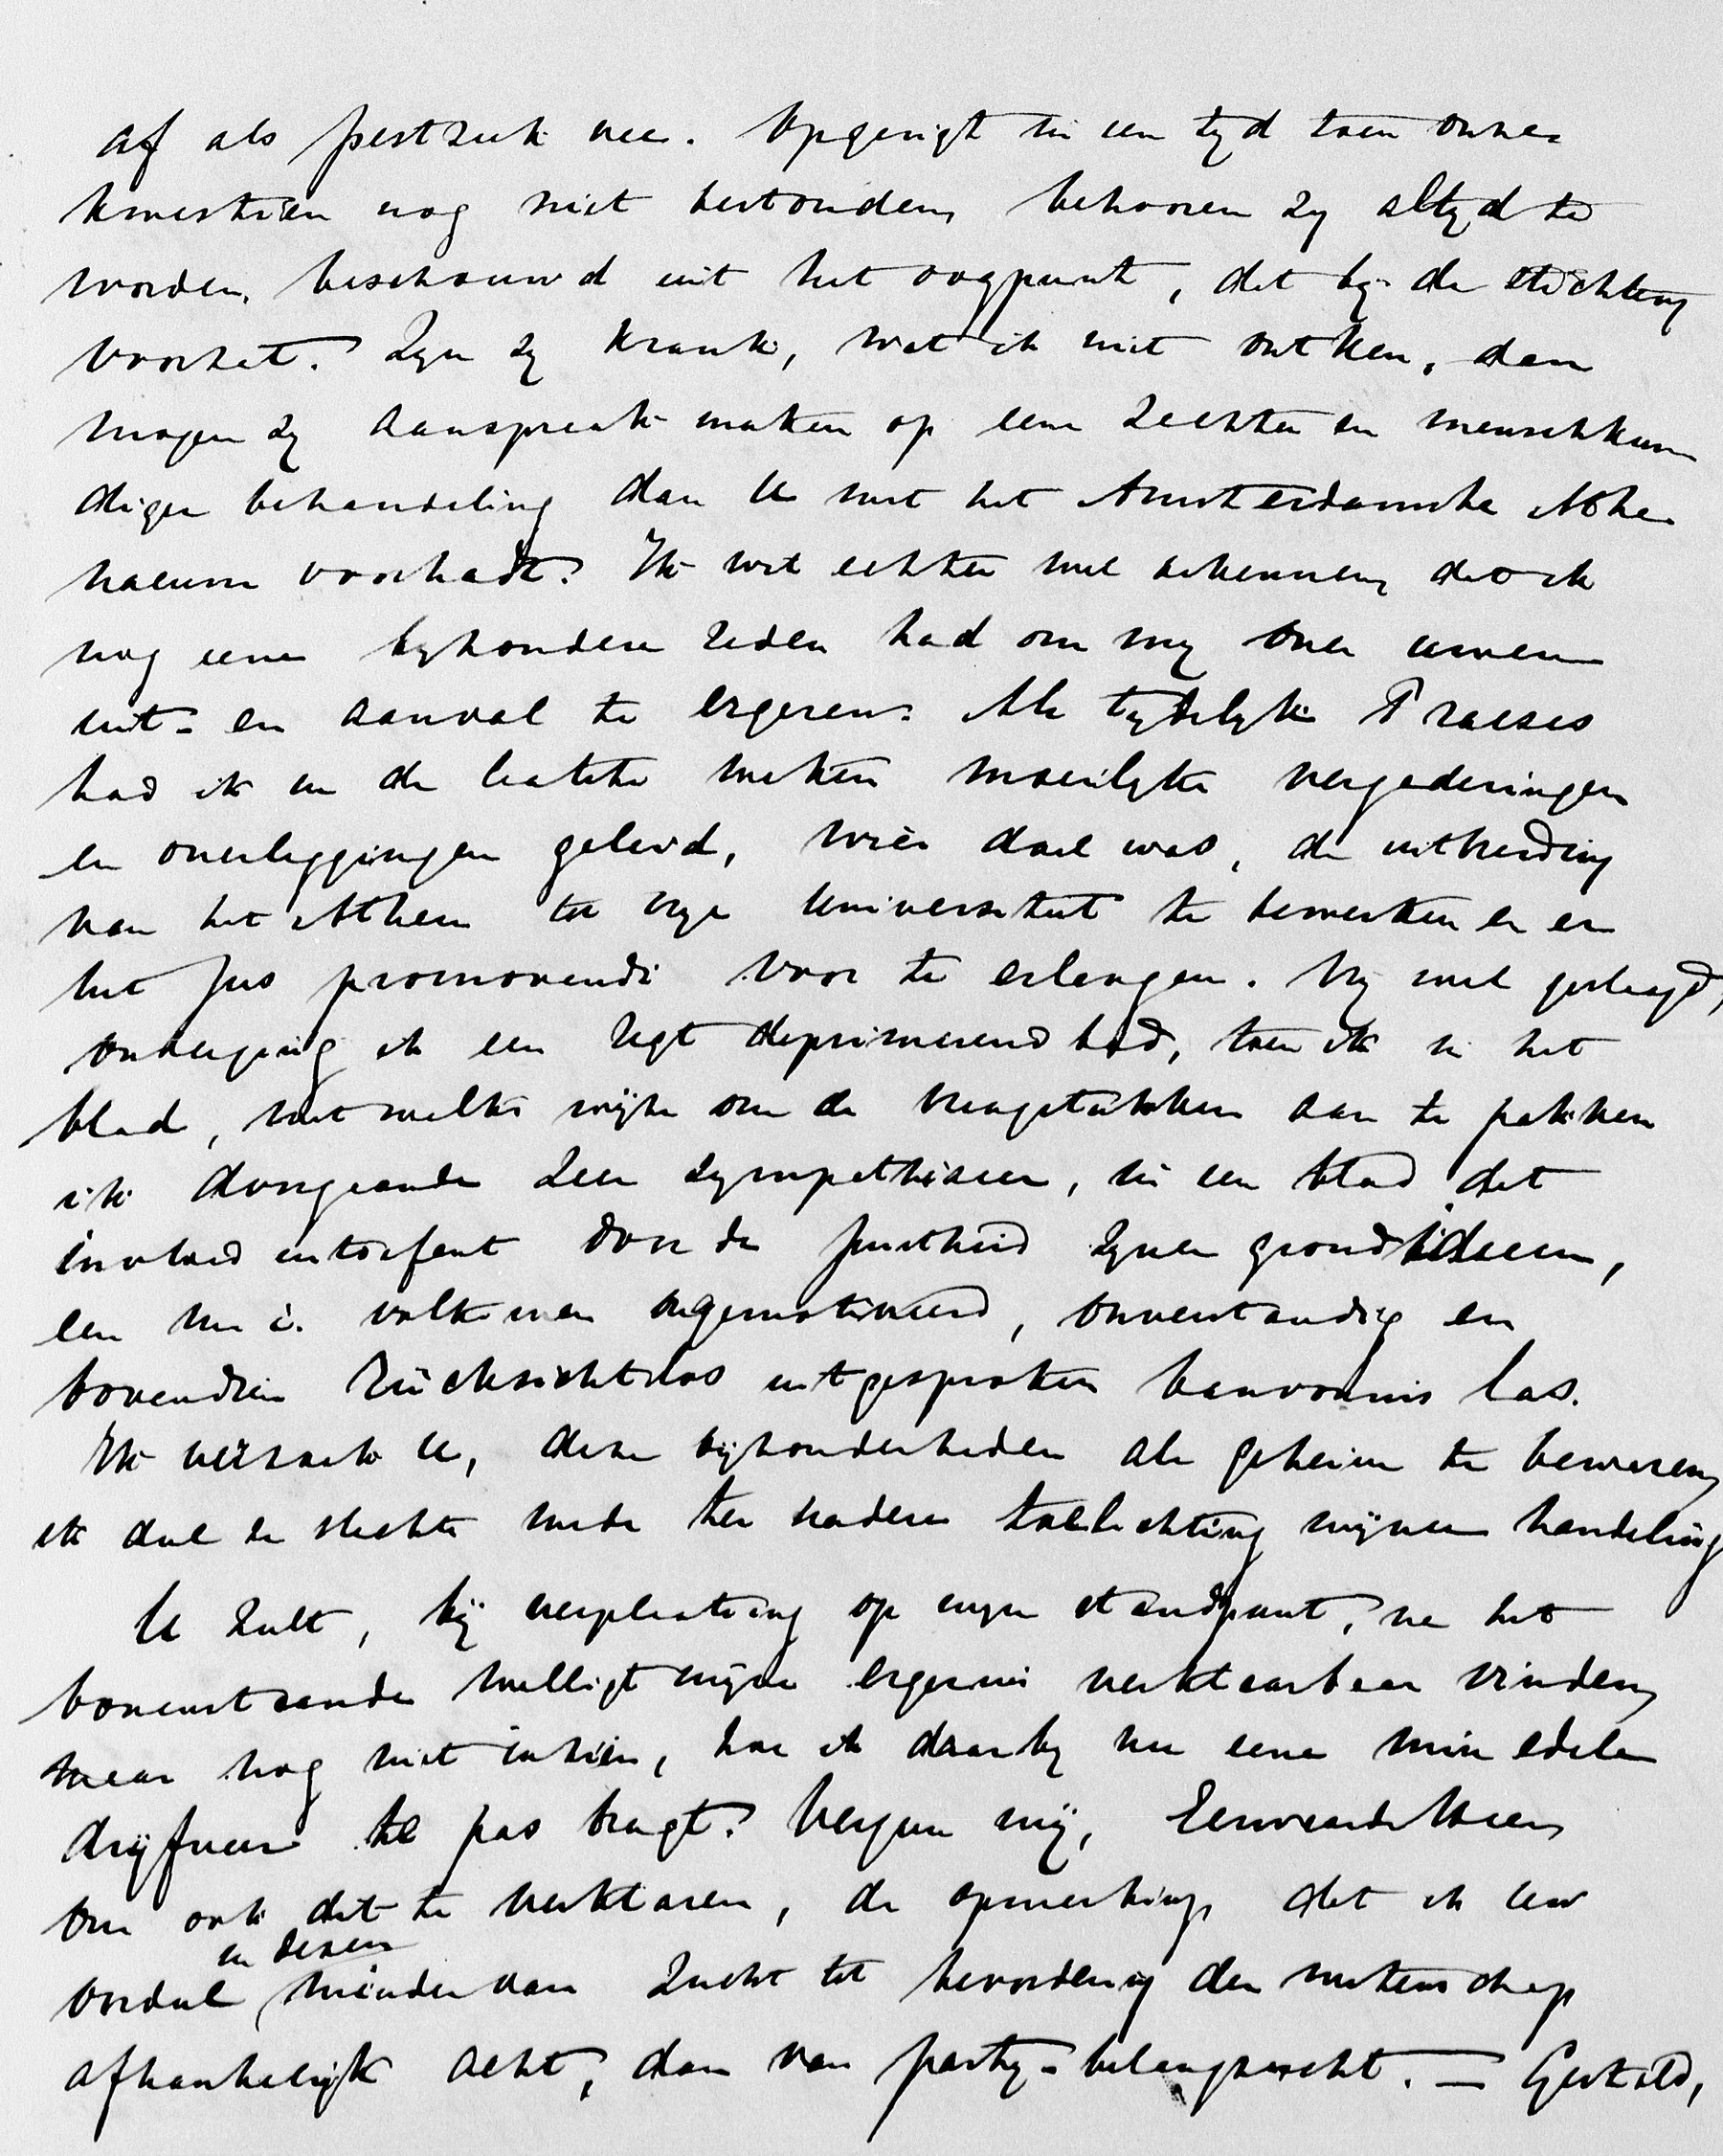 af als pestziek vee. Opgerigt in een tyd toen onze
kwestien nog niet bestonden, behooren zy altyd te
worden beschouwd uit het oogpunt, dat by de stichting
voorzat. Zyn zy krank, wat ik niet ontken, dan
mogen zy aanspraak maken op eene zachter en menschkun
diger behandeling dan U met het Amsterdamsche Athe-
naeum voorhadt. Ik wil echter wel erkennen, dat ik
nog eene byzondere reden had om my over uwen
uit- en aanval te ergeren. Als tydelyk Praeses
had ik in de laatste weken moeilyke vergaderingen
en overleggingen geleid, wier doel was, de uitbreiding
van het Athen tot vrye Universiteit te bewerken en er
het Jus promovendi voor te erlangen. Vry wel geslaagd,
onderging ik een regt deprimerend bad, toen ik in het
blad, met welks wijze om de vraagstukken aan te pakken
ik doorgaande zeer sympathiseer, in een blad dat
invloed uitoefent door de juistheid zyner grondideeen,
een m. i. volkomen ongemotiveerd, onverstandig en
bovendien rücksichtslos uitgesproken banvonnis las.
Ik verzoek U, deze bijzonderheden als geheim te bewaren,
ik deel ze slechts mede ter nadere toelichting mijner handeling
U zult, bij verplaatsing op myn standpunt, na het
bovenstaande wellicht mijne ergernis verklaarbaar vinden,
maar nog niet inzien, hoe ik daarby nu eene min edele
drijfveer te pas bragt. Vergun mij, Eerwaarde Heer,
om ook dit te verklaren, de opmerking, dat ik uw
in dezen
oordeel minder van zucht tot bevordering der wetenschap
afhankelijk acht, dan van party-belangzucht. — Gesteld,